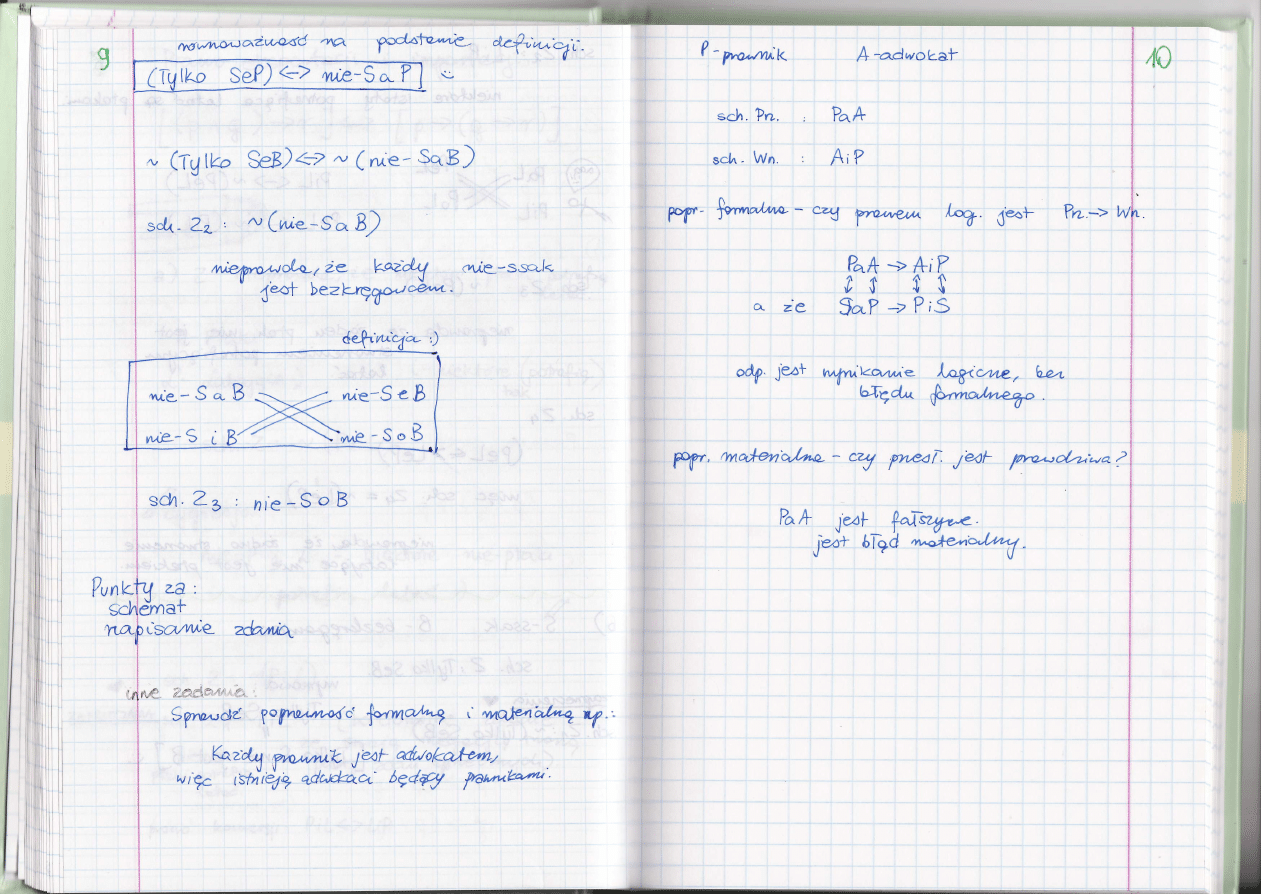 9
równoważność na podstawie definicji.
(Tylko SeP) <-> nie-SaP] :)
~ (Tylko SeB) <=> ~ (nie-SaB)
sch. Z2 : ~(nie-SaB)
nieprawda, że każdy nie-ssak
jest bezkręgowcem.
definicja :)
nie-SaB nie-SeB
nie-S i B nie-SoB
sch. Z3 : nie-SoB
Punkty za :
schemat
napisanie zdania
inne zadania:
Sprawdź poprawność formalną i materialną np.:
Każdy prawnik jest adwokatem,
więc istnieją adwokaci będący prawnikami.
10
P-prawnik A-adwokat
sch. Prz. : PaA
sch. Wn. : AiP
popr. formalna – czy prawem log. jest Prz. -> Wn.
PaA -> AiP
a że SaP -> PiS
odp. jest wynikanie logiczne, bez
błędu formalnego.
popr. materialna – czy przesł. jest prawdziwa?
PaA jest fałszywe.
jest błąd materialny.